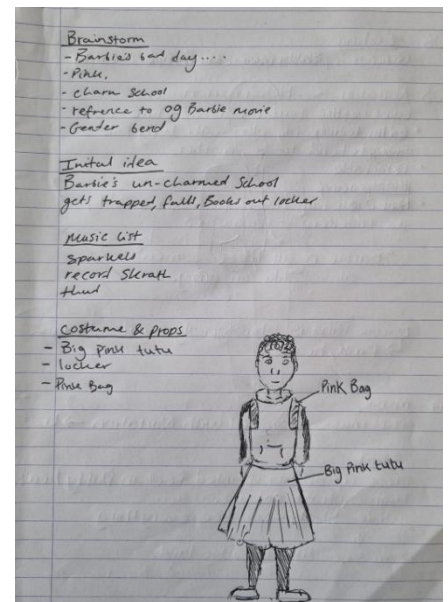 Brainstorm
- Barbie's bad day....
- Pink.
- charm School
- refrence to og Barbie movie
- Gender bend
Inital idea
Barbie's un-charmed School
gets trapped, falls, Books out locker
Music list
sparkels
record Skrath
thud
costume & props
- Big Pink tutu
- locker
- Pink Bag
Pink Bag
Big Pink tutu